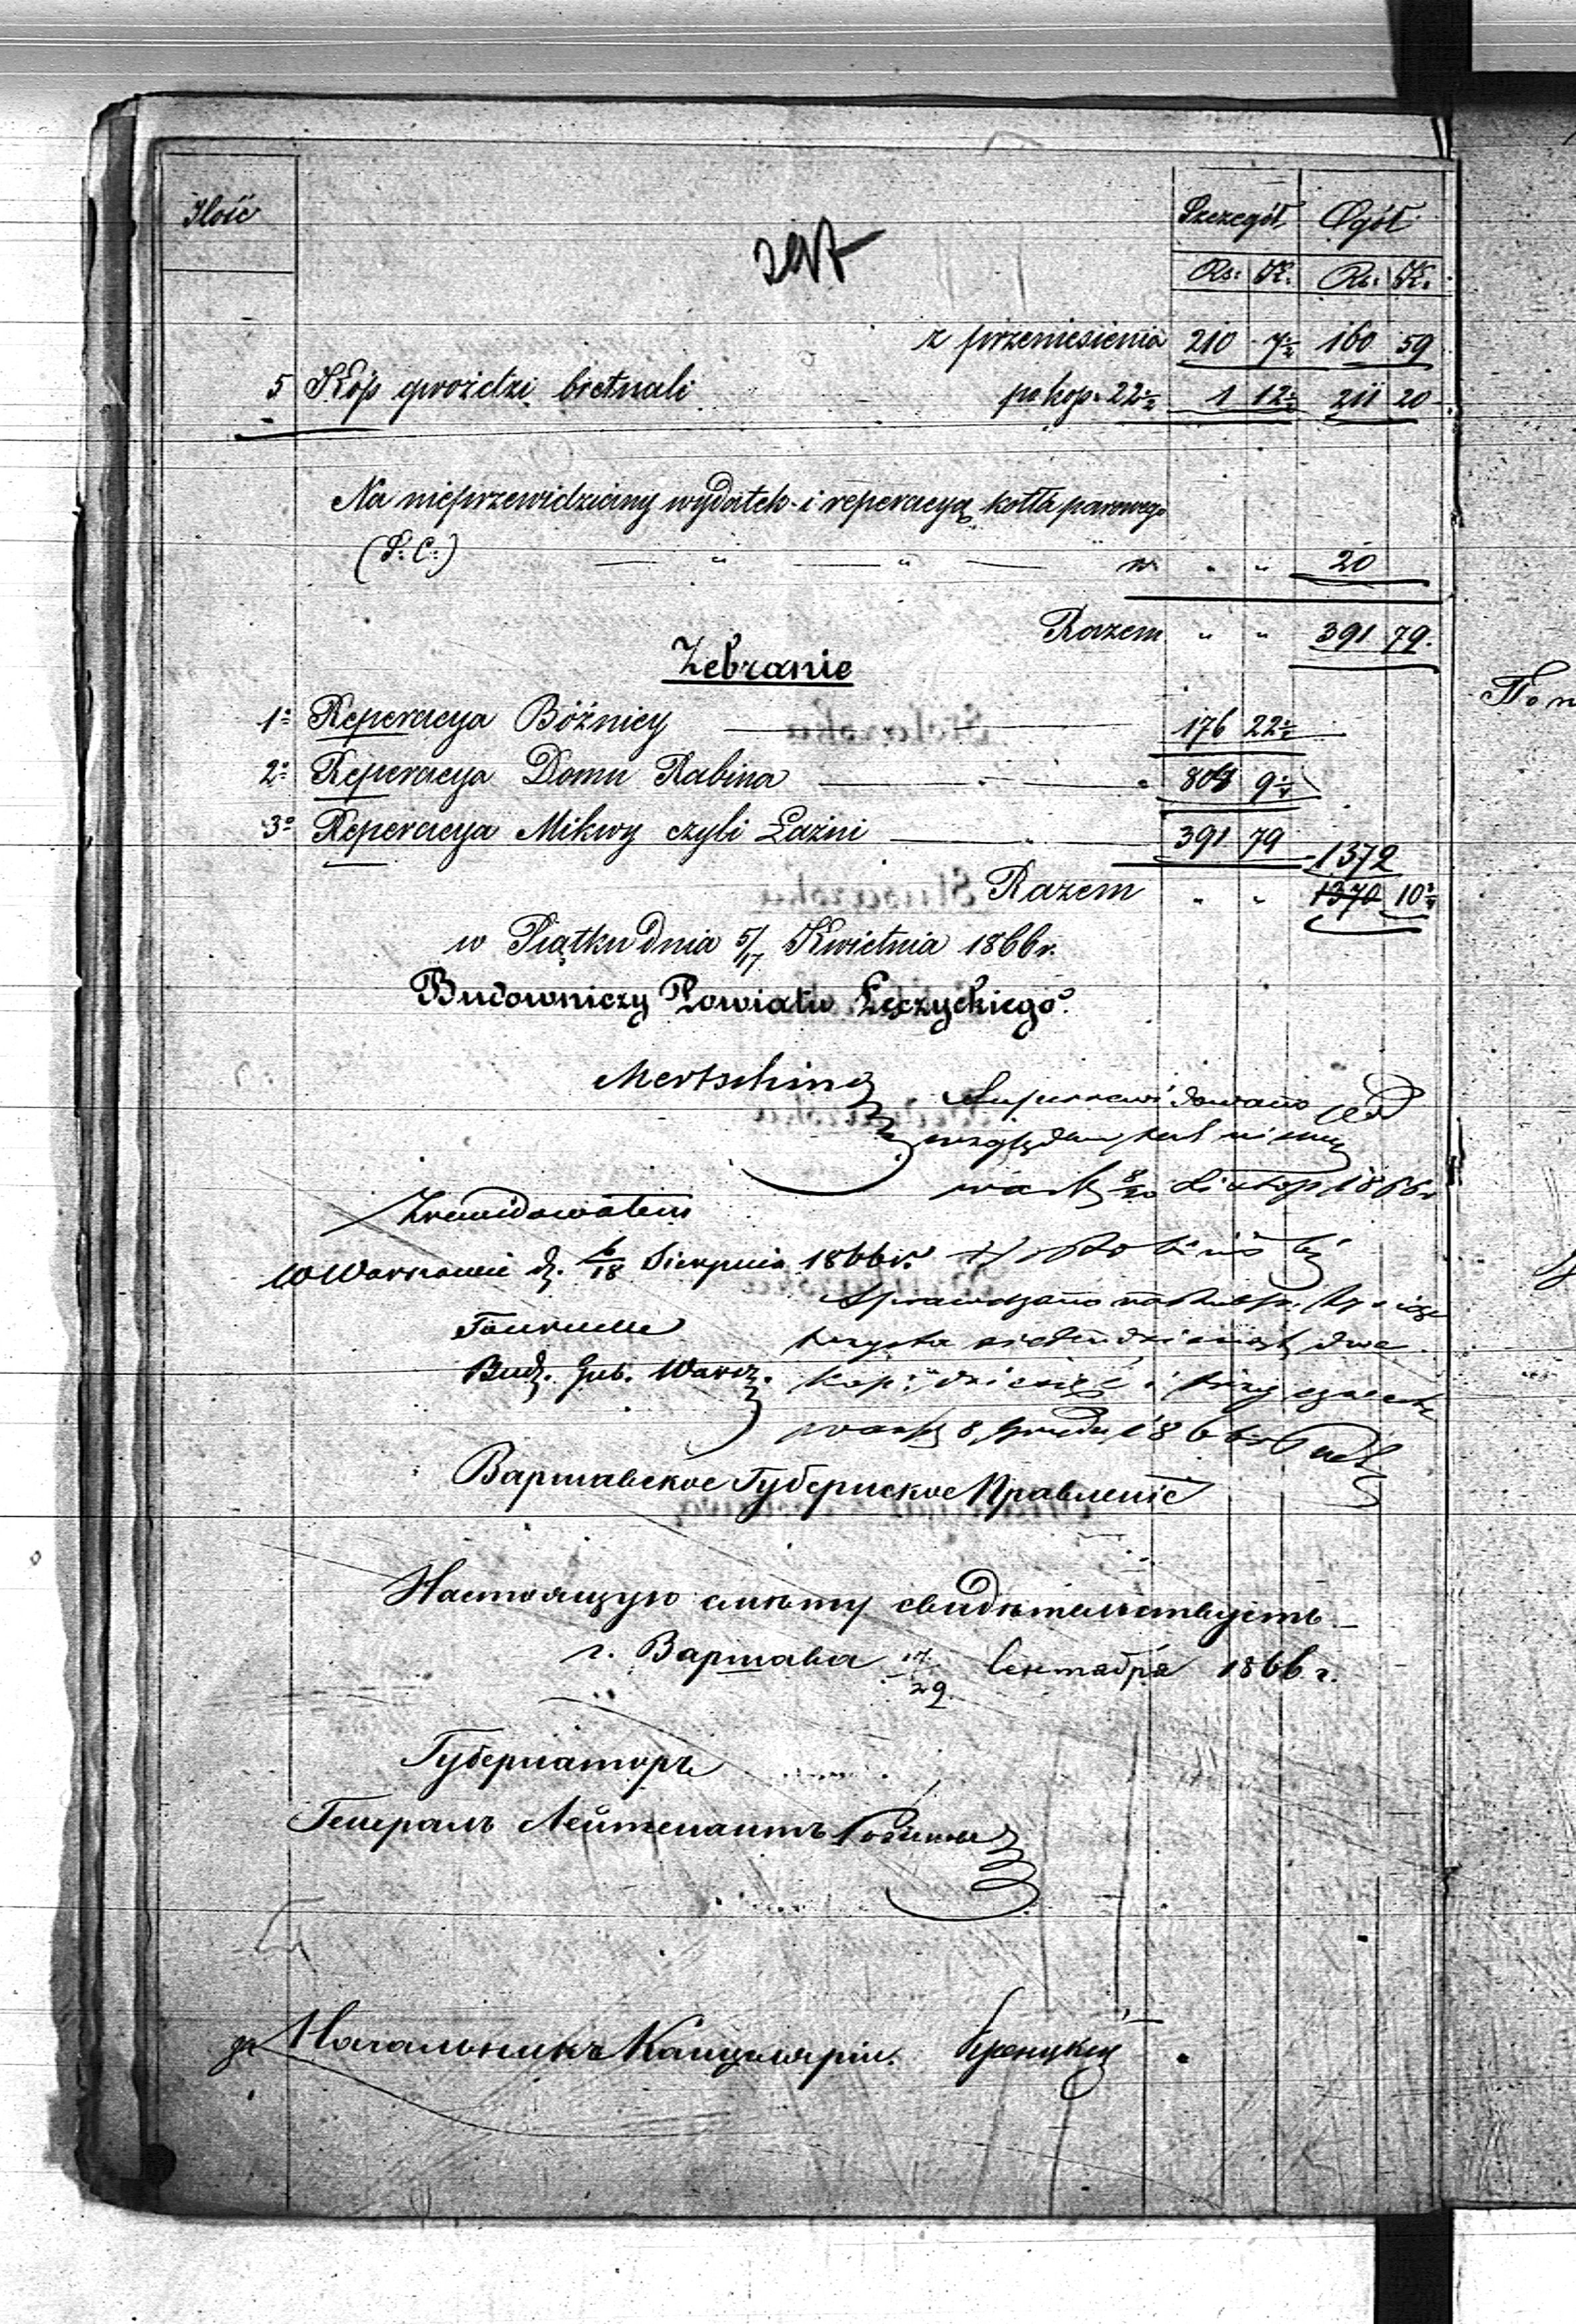 Ilość
Szczegół Ogół
Rs: K. Rs: K.
z przeniesienia 210 7½ 160 59
5 Kóp gwoździ bretnali po kop. 22½ 1 12½ 211 20
Na nieprzewidziany wydatek i reperacyą kotła parowego
(S: C:) — " — " — n. " " 20
Razem " " 391 79.
Zebranie
1° Reperacya Bóżnicy 176 22½
2° Reperacya Domu Rabina 804 9½
3° Reperacya Mikwy czyli Łaźni 391 79
1372
Razem " " 1370 10½
w Piątku dnia 5/17 Kwietnia 1866 r.
Budowniczy Powiatu Łęczyckiego.
Mertsching
Superrewidowano pod
względem
8/20 Listop 1866 r
Zrewidowałem
W Warszawie d. 6/18 Sierpnia 1866 r.
Sprawdzano na Rubsr. tysiąc
trzysta siedmdziesiąt dwa
Bud. Gub. Warsz.
kop: dziesięć i trzy czwarte
8 Grudn 1866
Варшавское Губернское Правленіе
Настоящую смѣту свидѣтельствуетъ
г. Варшава 17/29 Сентября 1866 г.
Губернаторъ
Генералъ Лейтенантъ
за Начальникъ Канцеляріи.